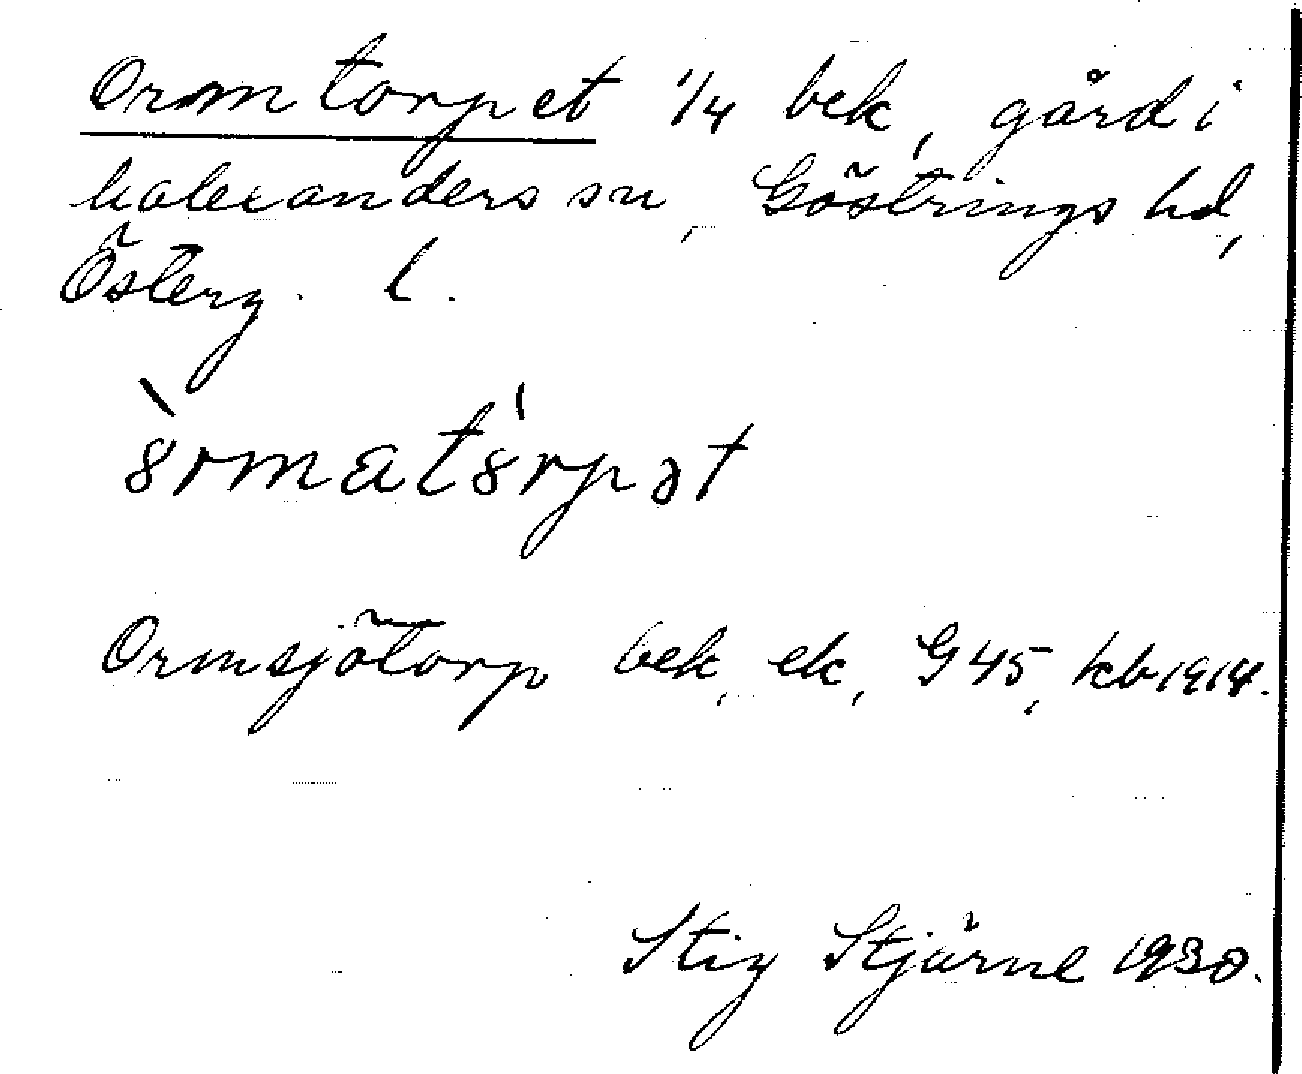 Ormtorpet 1/4 bek, gård i
Malexanders sn, Göstrings hd,
Österg. l.
ò̀rmató̀rpət
Ormsjötorp bek, ek, G45, kb 1914.
Stig Stjärne 1930.